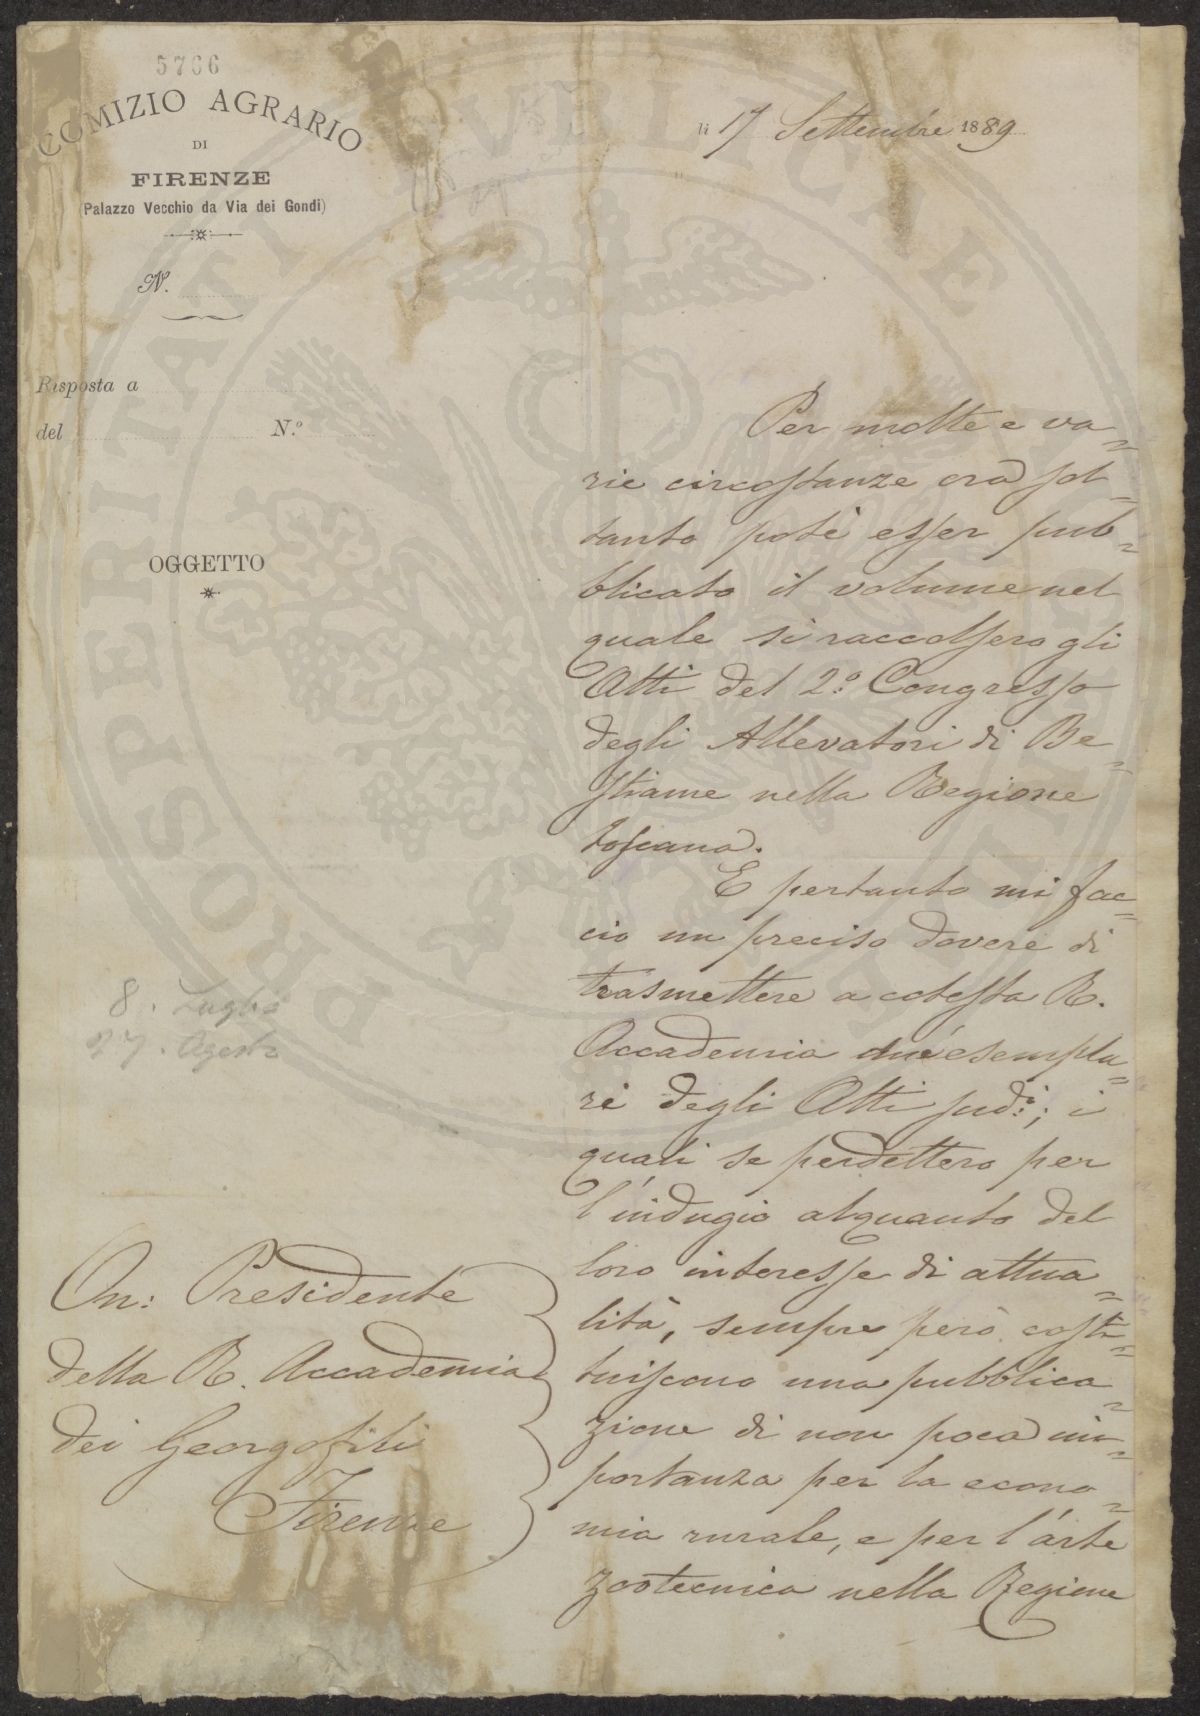 5766
COMIZIO AGRARIO
DI
FIRENZE
(Palazzo Vecchio da Via dei Gondi)
N.
Risposta a
del N.º
OGGETTO
li 17 Settembre 1889
Per molte e va-
rie circostanze ora sol-
tanto potè esser pub-
blicato il volume nel
quale si raccolsero gli
Atti del 2º Congresso
degli Allevatori di Be-
stiame nella Regione
toscana.
E pertanto mi fac-
cio un preciso dovere di
trasmettere a codesta R.
Accademia due esempla-
ri degli Atti sudi; i
quali se perdettero per
l'indugio alquanto del
loro interesse di attua-
lità, sempre però costi-
tuiscono una pubblica-
zione di non poca im-
portanza per la econo-
mia rurale, e per l'arte
zootecnica nella Regione
8. Luglio
27. Agosto
On: Presidente
della R. Accademia
dei Georgofili
Firenze
PROSPERITATI PUBLICAE AUGENDAE